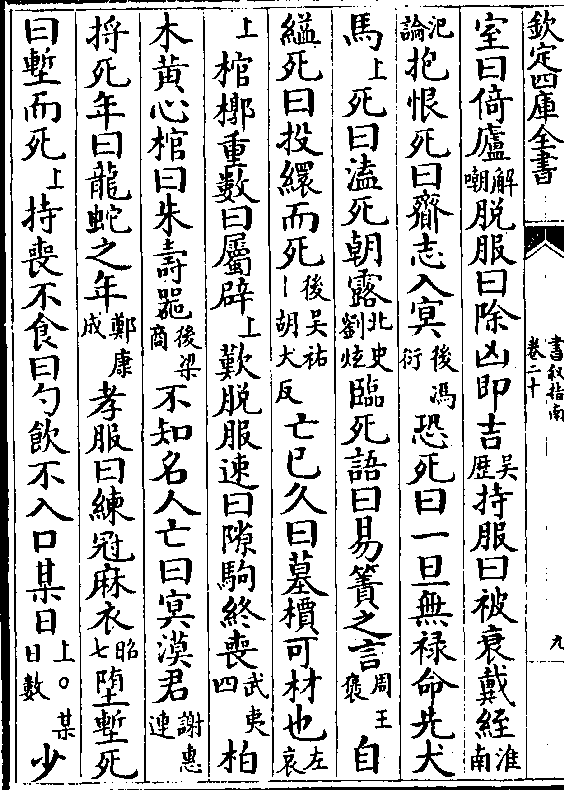 欽定四庫全書
室曰倚廬解嘲脱服曰除凶即吉吴歴持服曰被衰戴絰淮南
氾論抱恨死曰齎志入冥後馮衍恐死曰一旦無禄命先犬
馬上死曰溘死朝露北史劉炫臨死語曰易簀之言周王褒自
縊死曰投繯而死後吴祐丨胡犬反亡已久曰墓檟可材也左哀
上棺槨重數曰屬辟上歎脱服速曰隙駒終喪武夷四柏
木黄心棺曰朱壽器後梁商不知名人亡曰冥漠君謝惠連
将死年曰龍蛇之年鄭康成孝服曰練冠麻衣昭七堕塹死
曰塹而死上持喪不食曰勺飲不入口某日上○某日數少
書叙指南
卷二十
九